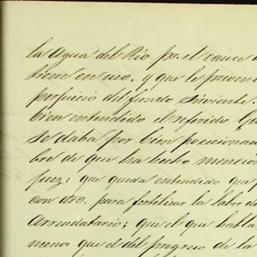 la Agua del Rio pr. el cauce
tiene en uso, y que le preven
perjuicio del fundo sirviente.
bien entendido el referido
se daba por bien posesionad
bor de que ha hecho mencion
juez: que queda entendido que
con dro. para fertilizar la labor de
Arrendatario; que el que habla
menos que el del progreso de la